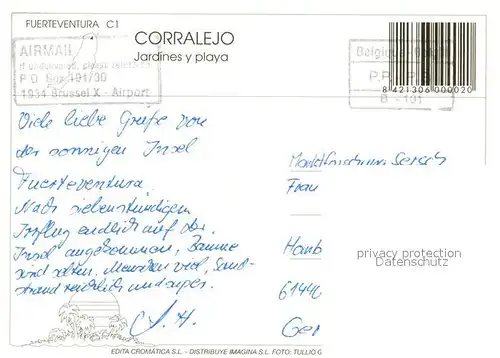 FUERTEVENTURA C1
CORRALEJO
Jardines y playa
AIRMAIL
If undelivered, please return to
P.O. Box 191/90
1934 Brussel X - Airport
Belgique - België
P.P. P.B.
B - 191
8 421306 000020
Viele liebe Grüße von
der sonnigen Insel
Fuerteventura.
Nach siebenstündigem
endlich auf der
Insel angekommen, Bäume
sind selten. Menschen viel, Sand-
strand reichlich und super.
A. H.
Marktforschung
Frau
Hamb
61440
Ger
privacy protection
Datenschutz
EDITA CROMÁTICA S.L. - DISTRIBUYE IMAGINA S.L. FOTO: TULLIO G